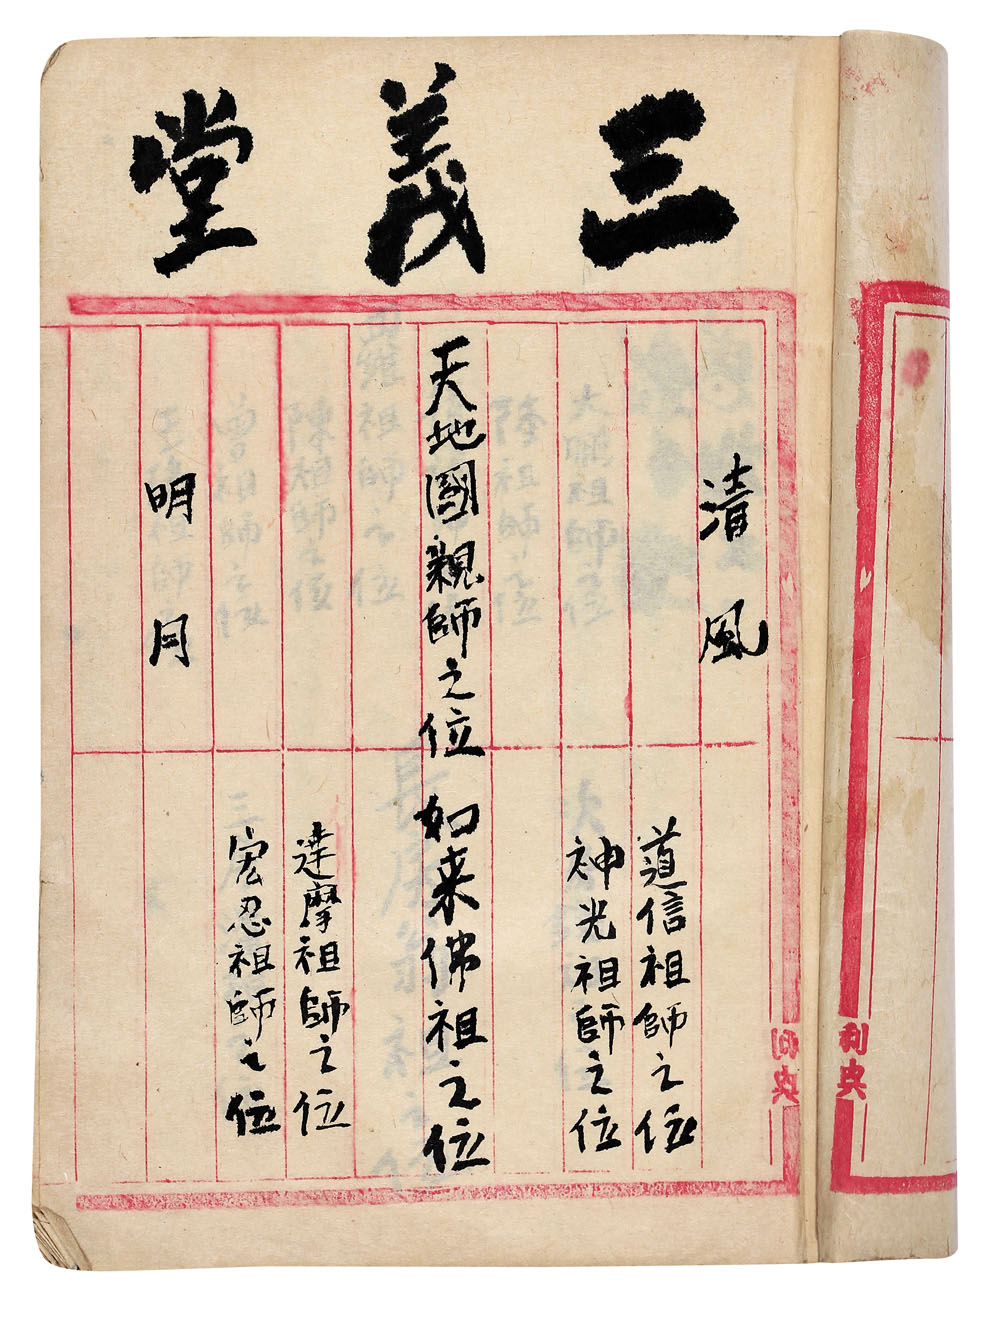 三義堂
清風
道信祖師之位
神光祖師之位
天地國親師之位 如来佛祖之位
達摩祖師之位
宏忍祖師之位
明月